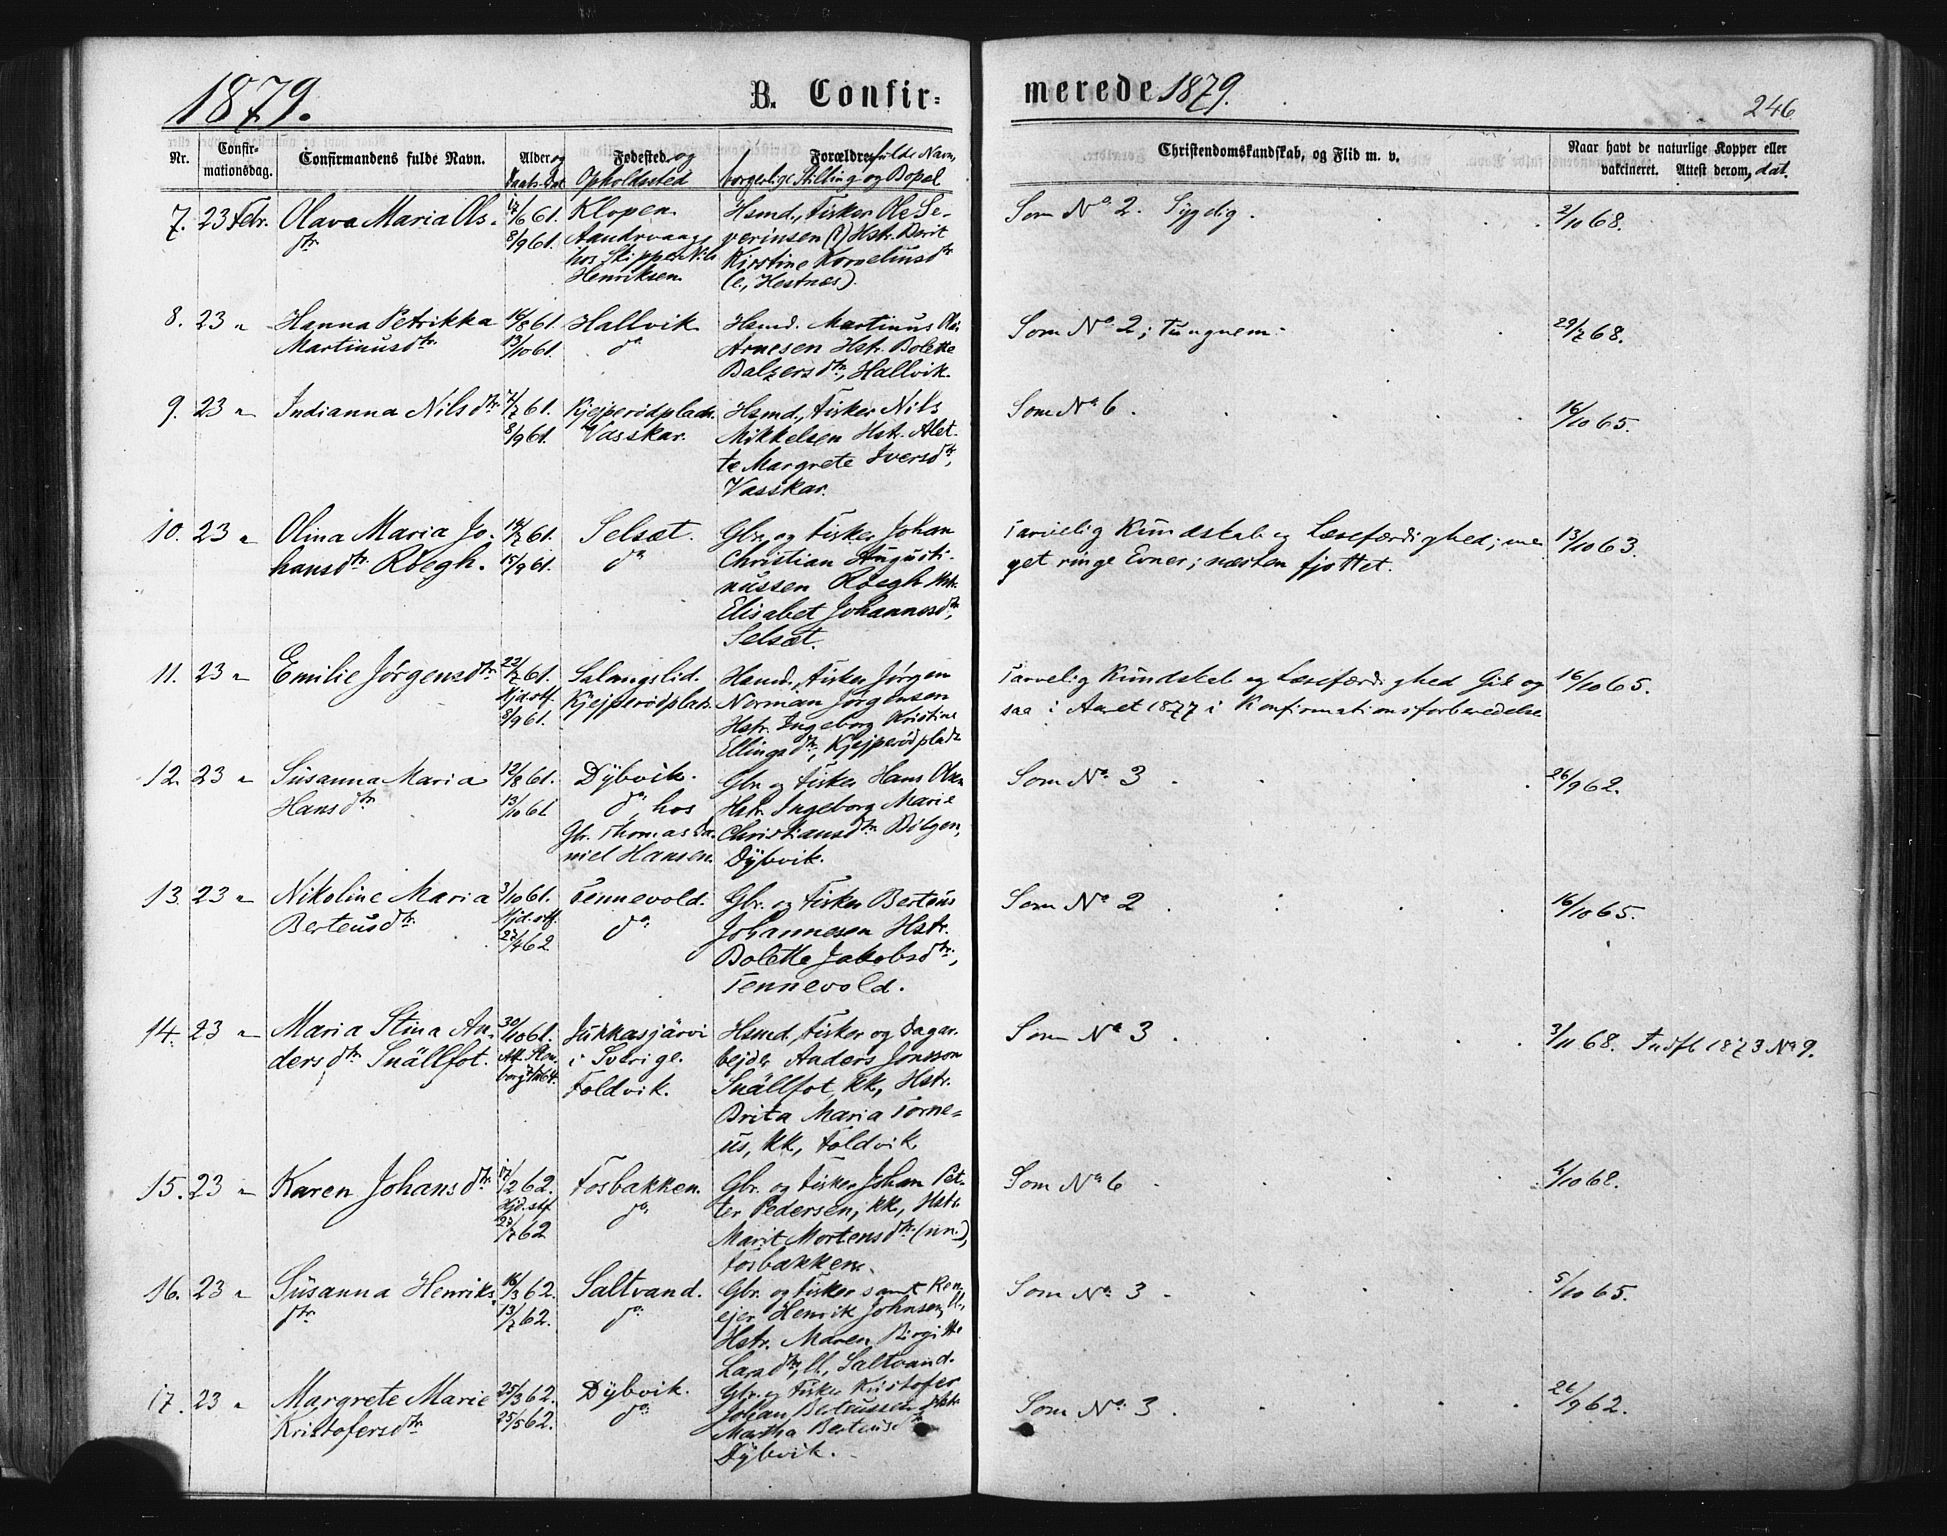 1879.
B. Confir-
merede 1879.
246
Nr.
Confir-
mationsdag.
Confirmandens fulde Navn.
Alder og
Daabs-Dat.
Fødested og
Opholdssted
Forældres fulde Navn,
borgerlige Stilling og Bopel
Christendomskundskab, og Flid m. v.
Naar havt de naturlige Kopper eller
vakcineret. Attest derom, dat.
7. 23 Febr. Olava Maria Ols-
dtr
17/6 61.
8/9 61.
Klopen.
Aandrvaag
hos Skipper Nils
Henriksen.
Hsmd., Fisker Ole Se-
verinsen (†) Hstr. Berit
Kirstine Kornelius dtr
(e., Hestnæs).
Som No 2. Sygelig.
2/10 68.
8. 23 " Hanna Petrikka
Martinus dtr.
16/8 61.
13/10 61.
Hallvik
do
Hsmd. Martinus Ole
Arnesen Hstr. Bolette
Balzers dtr, Hallvik.
Som No 2; Tungnem.
29/7 68.
9. 23 " Indianna Nils dtr
7/7 61.
8/9 61.
Kjejperødplads.
Vasskar.
Hsmd., Fisker Nils
Mikkelsen Hstr. Alet-
te Margrete Iversdtr,
Vasskar.
Som No 6.
16/10 65.
10. 23 " Olina Maria Jo-
hans dtr Røegh.
18/7 61.
15/9 61.
Selsæt.
do
Gbr. og Fisker Johan
Christian Augusti-
nussen Røegh Hstr.
Elisabet Johannes dtr,
Selsæt.
Tarvelig Kundskab og Læsefærdighed; me
get ringe Evner; næsten fjottet.
13/10 63.
11. 23 " Emilie Jørgens dtr
22/7 61.
Hjd. stf.
8/9 61.
Salangslid.
Kjejperødplads.
Hsmd., Fisker Jørgen
Norman Jørgensen
Hstr. Ingeborg Kristine
Ellings dtr, Kjejperødplads
Tarvelig Kundskab og Læsefærdighed Gik og
saa i Aaret 1877 i Konfirmationsforberedelse
16/10 65.
12. 23 " Susanna Maria
Hans dtr
12/8 61.
13/10 61
Dybvik.
do, hos
Gbr. Thomas Da-
niel Hansen.
Gbr. og Fisker Hans Olsen
Hstr. Ingeborg Marie
Christians dtr. Bølgen,
Dybvik.
Som No 3
26/9 62.
13. 23 " Nikoline Maria
Berteus dtr.
3/10 61.
Hjd. stf.
27/4 62
Tennevold.
do
Gbr. og Fisker Berteus
Johannesen Hstr.
Bolette Jakobs dtr,
Tennevold.
Som No 2
16/10 65.
14. 23 " Maria Stina An-
ders dtr Snällfot.
30/10 61.
Jukkasjärvi
i Sverige.
Foldvik.
Hsmd, Fisker og Dagar-
bejder Anders Jonsson
Snällfot, kk, Hstr.
Brita Maria Torne-
us, kk, Foldvik
Som No 3
3/11 68. Indfl 1873 No 9.
15. 23 " Karen Johans dtr
17/2 62.
Hjd. stf
27/7 62
Fosbakken.
do
Gbr. og Fisker Johan Pet-
ter Pedersen, kk, Hstr.
Marit Mortens dtr. (nn.),
Fosbakken.
Som No 6
4/10 68.
16. 23 " Susanna Henriks
dtr
16/3 62.
13/7 62.
Saltvand.
do
Gbr. og Fisker samt Ren-
ejer Henrik Johnsen, ll,
Hstr. Maren Birgitte
Lars dtr, ll, Saltvand.
Som No 3
5/10 65.
17. 23 " Margrete Marie
Kristofers dtr
25/3 62.
25/5 62.
Dybvik.
do
Gbr. og Fisker Kristofer
Johan Berteussen Hstr.
Martha Berteus dtr
Dybvik.
Som No 3
26/9 62.